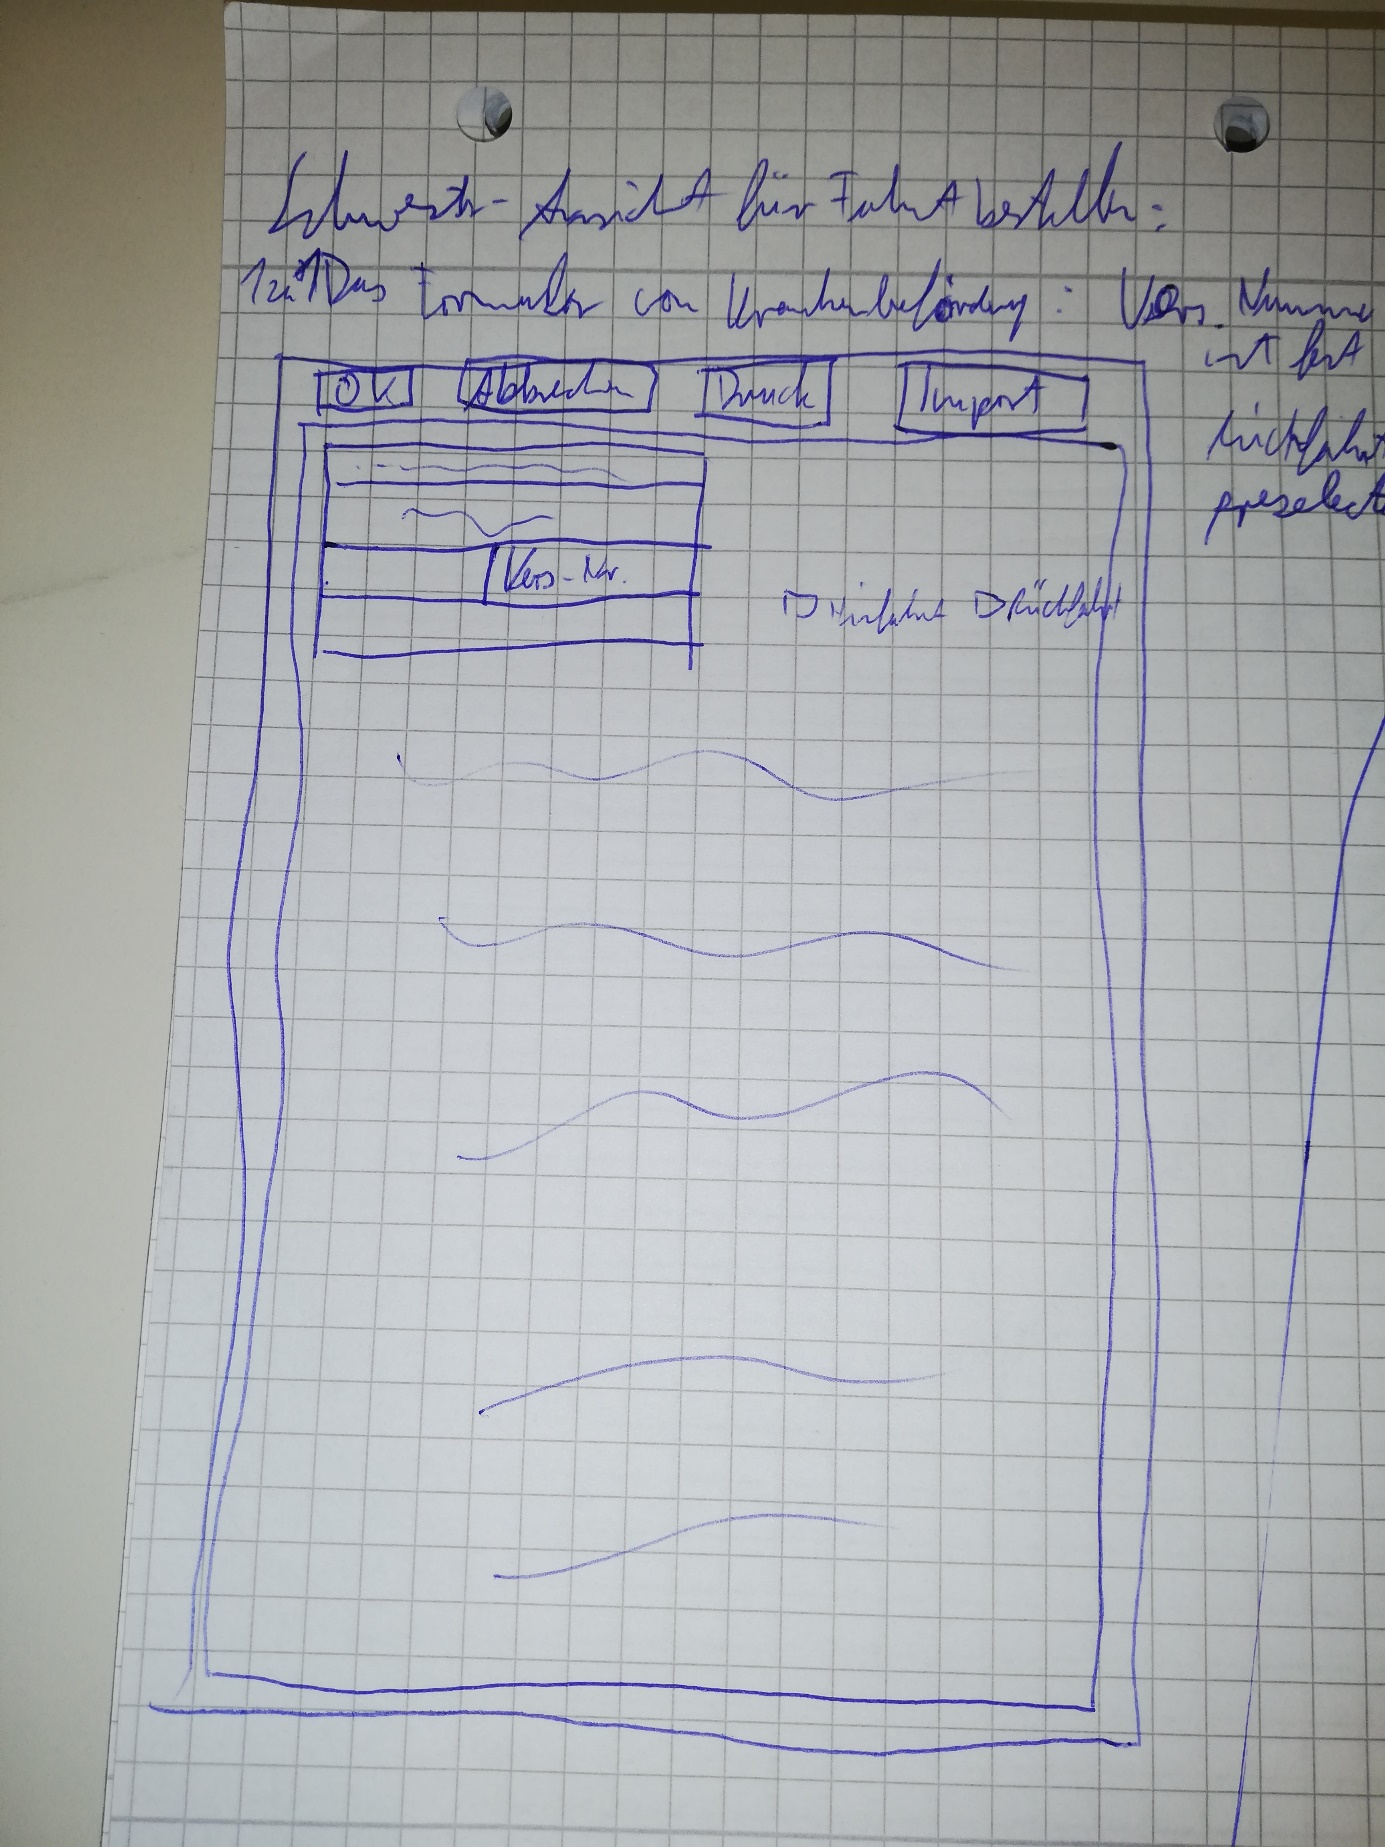 Schwester-Ansicht für Fahrt bestellen:
1zu1 Das Formular von Krankenbeförderung: Vers. Nummer
ist fest
Rückfahrt
preselect
OK Abbrechen Druck Import
Vers-Nr.
Hinfahrt Rückfahrt